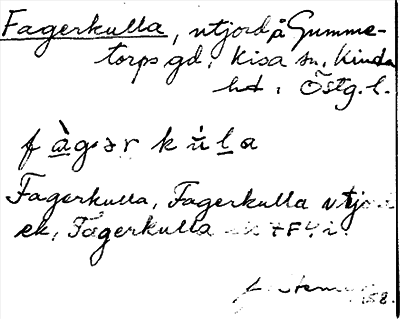 Fagerkulla, utjord å Gumme-
torps gd, Kisa sn, Kinda
hd, Östg. l.
fàgər kùla
Fagerkulla, Fagerkulla utjord
ek, Fagerkulla
58.